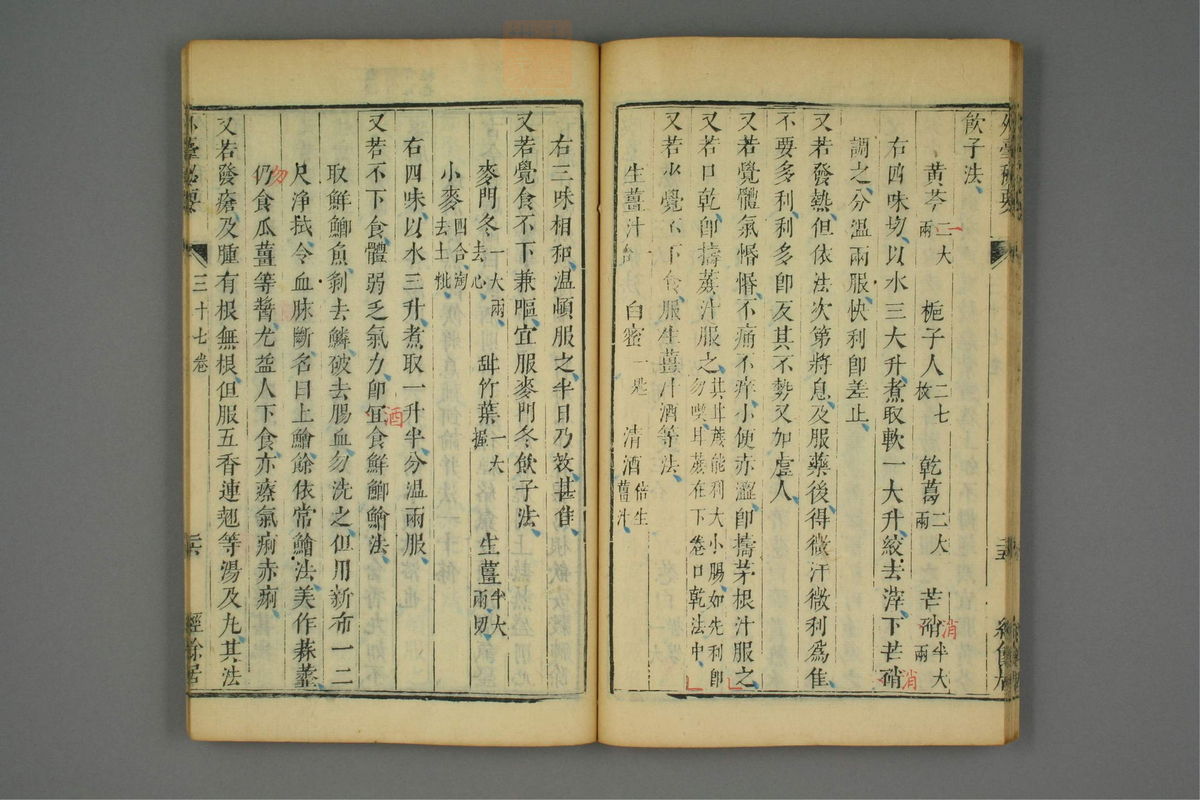 飲子法
黄芩二大兩 梔子人二七枚 乾葛二大兩 芒硝半大兩
右四味切以水三大升煮取軟一大升絞去滓下芒硝
調之分温兩服快利即差止
又若發熱但依法次第將息及服藥後得微汗微利爲佳
不要多利利多即反其不勢又如虚人
又若覺體氣惛惛不痛不痒小便赤澀即擣茅根汁服之
又若口乾即擣蔗汁服之其甘蔗能利大小腸如先利即勿喫耳蔗在下卷口乾法中
又若水覺不下食服生薑汁酒等法
生薑汁 白蜜一匙 清酒倍生薑汁
右三味相和温頓服之半日乃效甚佳
又若覺食不下兼嘔宜服麥門冬飲子法
麥門冬一大兩去心 甜竹葉一大握 生薑半大兩切
小麥四合淘去土粃
右四味以水三升煮取一升半分温兩服
又若不下食體弱乏氣力即宜食鮮鯽鱠法
酒
取鮮鯽魚剝去鱗破去腸血勿洗之但用新布一二
尺净拭令血脉斷名曰上鱠餘依常鱠法美作蒜虀
仍食瓜薑等醬尤益人下食亦療氣痢赤痢
勿
又若發瘡及腫有根無根但服五香連翹等湯及丸其法
外臺秘要
三十七卷
二六
經餘居
外臺秘要
二五
消
消